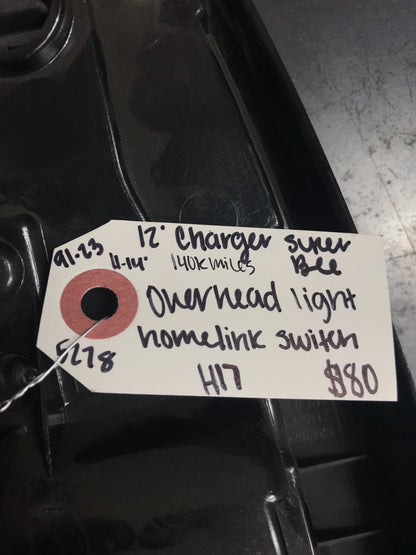 91-23 12' Charger Super
11-14' 140K miles Bee
Overhead light
homelink switch
5278 H17 $80